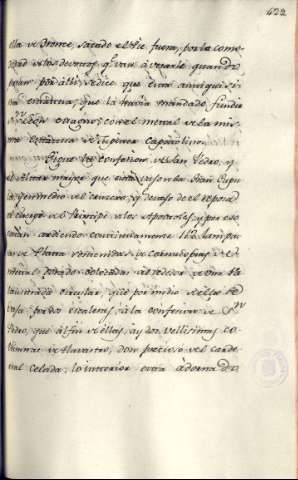 422
ella de Bronce, sacado el Pie fuera, por la como
didad de los devotos q.e van à vesarle quando
pasan por alli, se dice que era antiguam.te
una estatua, que la havia mandado fundir
S.n Leon Magno, con el metal de la mis
ma estatua de Jupiter Capitolino
Sigue la confesion de San Pedro, y
el Altar mayor que està devajo la gran Cupu
la en medio del crucero, y devajo de el reposa
el cuerpo del Principe de los Apostoles, y por eso
estàn ardiendo continuamente 112 lampa
ras de Plata sostenidas de cornucopias de
metal dorado, colocadas al rededor de una ba
laustrada circular, que por medio de ellas se
vaja por dos escaleras à la confesion de S.n
Pedro, que al fin de ellas, ay dos vellisimas co
lumnas de Alavastro, don precioso del carde
nal Celada, lo interior està adornado